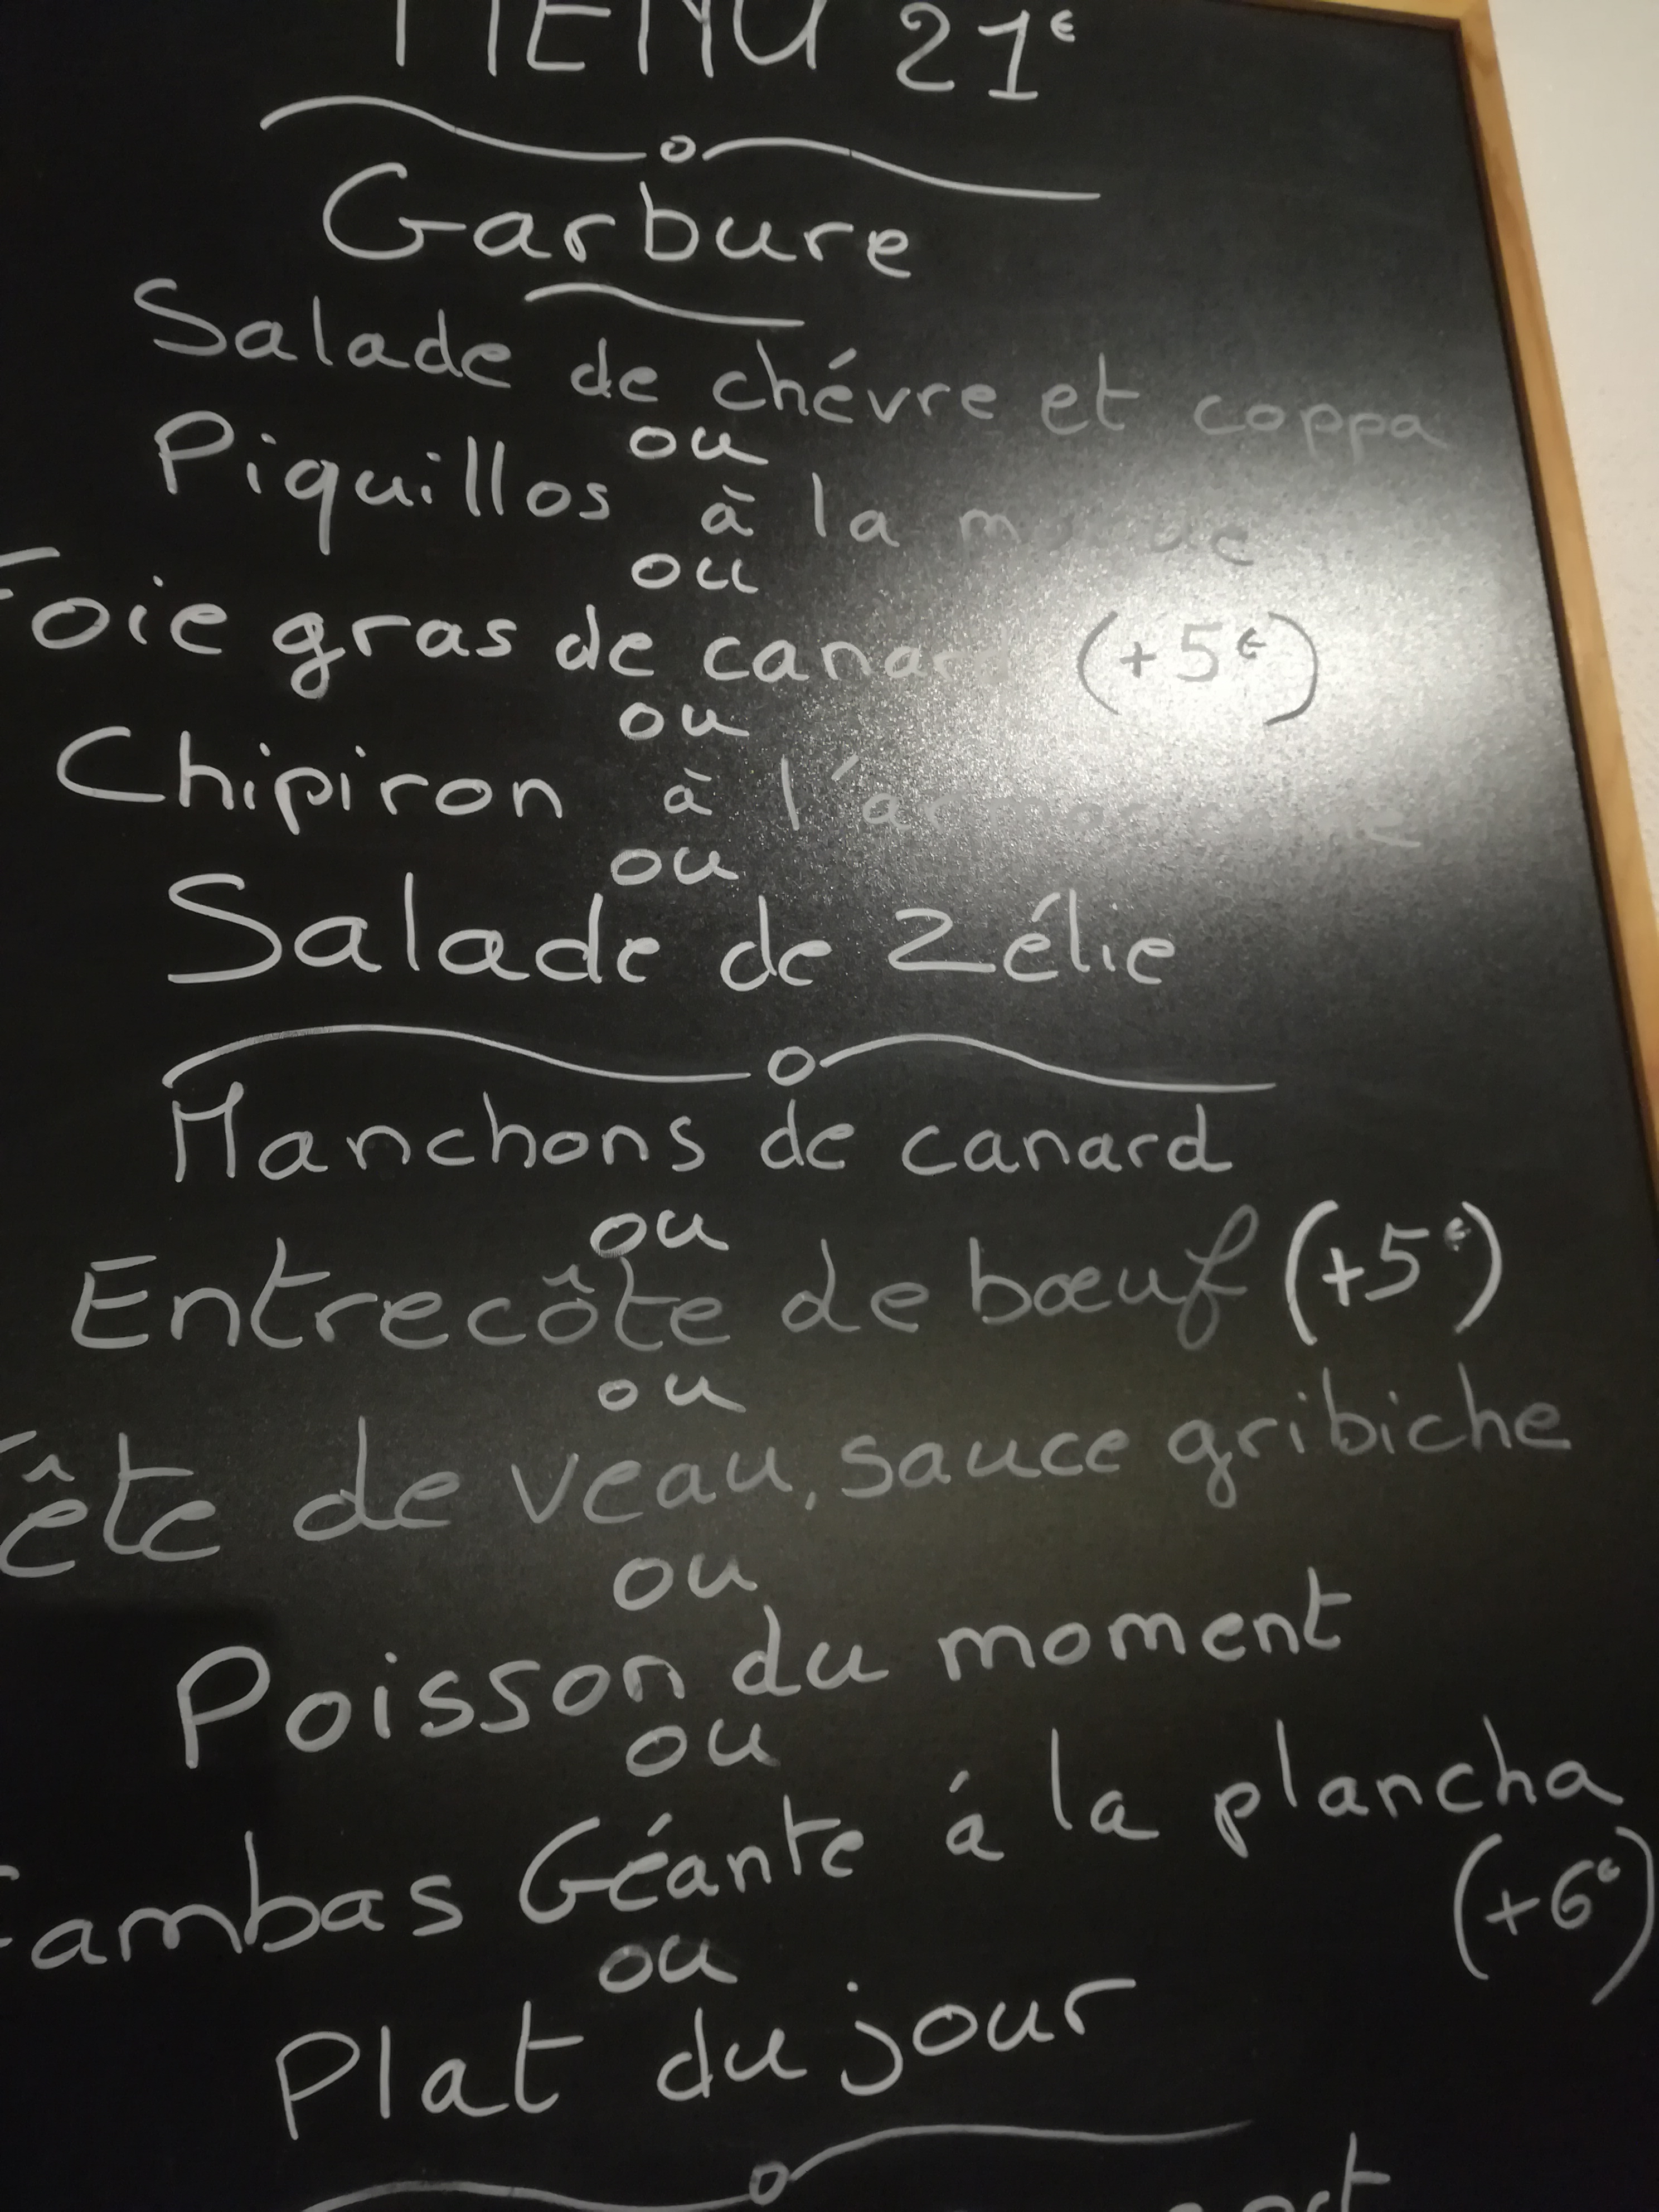 MENU 21€
Garbure
Salade de chévre et coppa
ou
Piquillos à la
ou
Foie gras de canard (+5€)
ou
Chipiron à l'armoricaine
ou
Salade de Zélie
Manchons de canard
ou
Entrecôte de bœuf (+5€)
ou
Tête de veau, sauce gribiche
ou
Poisson du moment
ou
Gambas Géante á la plancha
(+6€)
ou
Plat du jour